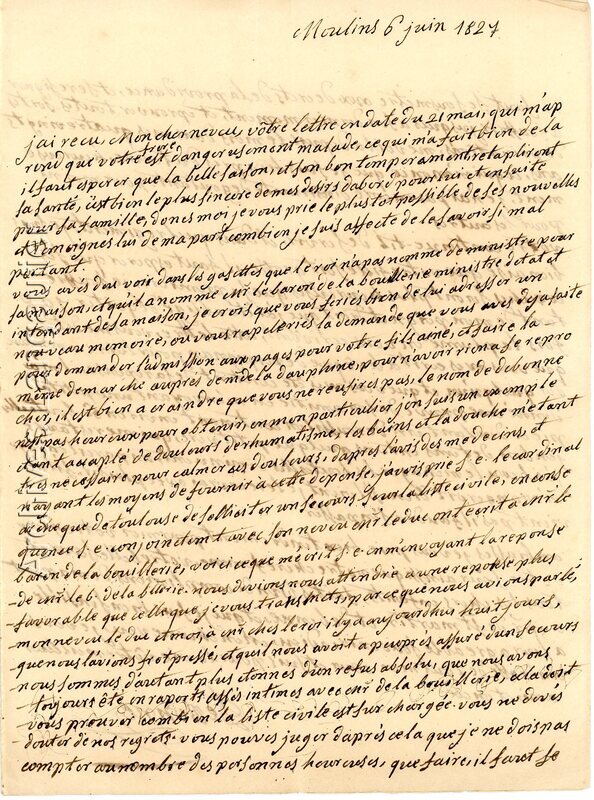 Moulins 6 juin 1827
j'ai recu, Mon cher neveu, vôtre lettre en date du 21 mai, qui m'ap
rend que votre frere est dangereusement malade, ce qui m'a fait bien de la
il faut esperer que la belle saison, et son bon temperament retabliront
sa santé, c'est bien le plus sincere de mes desirs d'abord pour lui et ensuite
pour sa famille, donés moi je vous prie le plustot possible de ses nouvelles
et temoignés lui de ma part combien je suis affecté de le savoir si mal
portant.
vous avés du voir dans les gasettes que le roi n'a pas nomme de ministre pour
sa maison, et qu'il a nomme mr. le baron de la bouillerie ministre d'etat et
intendant de sa maison, je crois que vous feriés bien de lui adresser un
nouveau memoire, ou vous rapelleriés la demande que vous avés deja faite
pour demander l'admission aux pages pour votre fils ainé, et faire la
même demarche aupres de mde. la dauphine, pour n'avoir rien a se repro
cher, il est bien a craindre que vous ne reusires pas, le nom de debonne
n'est pas heureux pour obtenir, en mon particulier j'en suis un exemple
etant accaplé de douleurs de rhumatisme, les bains et la douche m'etant
tres necessaire pour calmer ces douleurs, d'apres l'avis des medecins, et
n'ayant les moyens de fournir a cette depense, j'avois prie s. e. le cardinal
archeque de toulouse de solliciter un secours sur la liste civile, en conse
quence s. e. conjointemt avec son neveu mr. le duc ont ecrit a mr. le
baron de la bouillerie, voici ce que m'ecrit s. e. en m'envoyant la reponse
- de mr. le b. de la bllerie. nous devions nous attendre a une reponse plus
- favorable que celle que je vous transmets, parceque nous avions parlé,
- mon neveu le duc et moi, a mr. ches le roi il y a aujourdhui huit jours,
- que nous l'avions fort pressé, et qu'il nous avoit a peu pres assuré d'un secours
- nous sommes d'autant plus etonnés d'un refus absolu, que nous avons
- toujours êté en raports assés intimes avec mr. de la bouillerie, cela doit
- vous prouver combien la liste civile est surchargée. vous ne devés
- douter de nos regrets. vous pouvés juger d'après cela que je ne dois pas
compter au nombre des personnes heureuses, que faire, il faut se